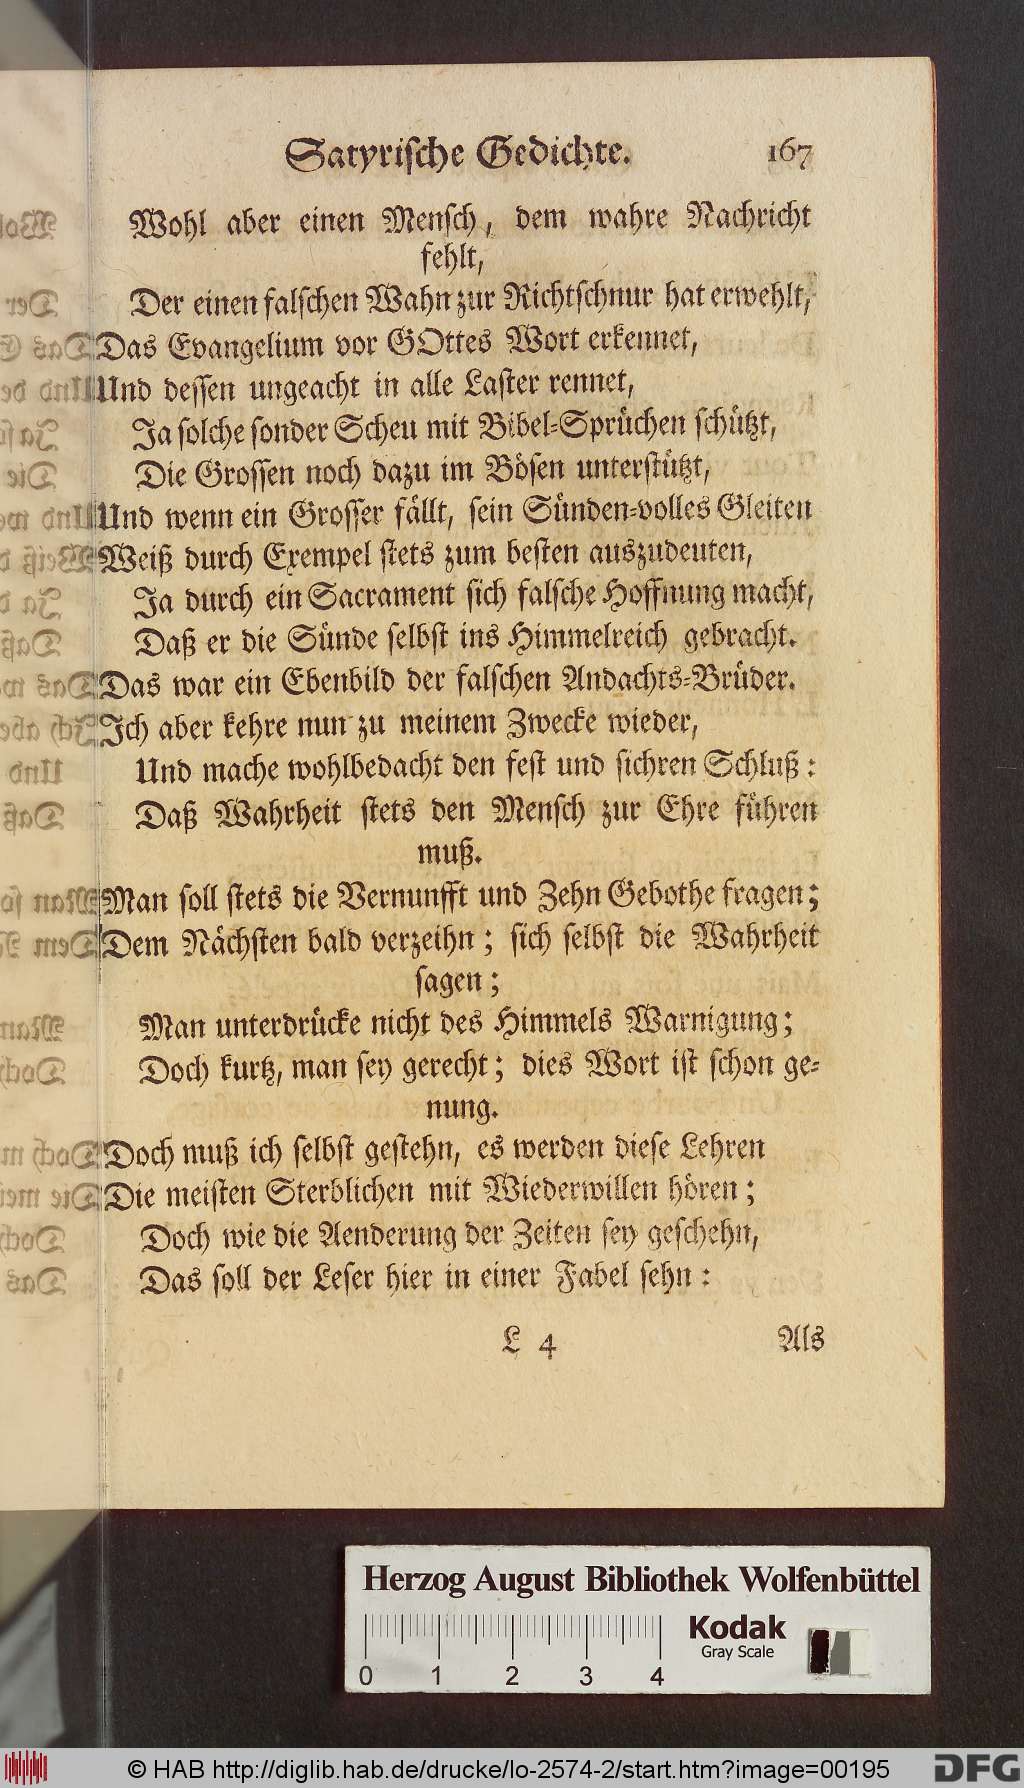 Satyrische Gedichte. 167
Wohl aber einen Mensch, dem wahre Nachricht
fehlt,
Der einen falschen Wahn zur Richtschnur hat erwehlt,
Das Evangelium vor GOttes Wort erkennet,
Und dessen ungeacht in alle Laster rennet,
Ja solche sonder Scheu mit Bibel-Sprüchen schützt,
Die Grossen noch dazu im Bösen unterstützt,
Und wenn ein Grosser fällt, sein Sünden-volles Gleiten
Weiß durch Exempel stets zum besten auszudeuten,
Ja durch ein Sacrament sich falsche Hoffnung macht,
Daß er die Sünde selbst ins Himmelreich gebracht.
Das war ein Ebenbild der falschen Andachts-Brüder.
Ich aber kehre nun zu meinem Zwecke wieder,
Und mache wohlbedacht den fest und sichren Schluß:
Daß Wahrheit stets den Mensch zur Ehre führen
muß.
Man soll stets die Vernunfft und Zehn Gebothe fragen;
Dem Nächsten bald verzeihn; sich selbst die Wahrheit
sagen;
Man unterdrücke nicht des Himmels Warnigung;
Doch kurtz, man sey gerecht; dies Wort ist schon ge-
nung.
Doch muß ich selbst gestehn, es werden diese Lehren
Die meisten Sterblichen mit Wiederwillen hören;
Doch wie die Aenderung der Zeiten sey geschehn,
Das soll der Leser hier in einer Fabel sehn:
L 4 Als
Herzog August Bibliothek Wolfenbüttel
Kodak
Gray Scale
0 1 2 3 4
© HAB http://diglib.hab.de/drucke/lo-2574-2/start.htm?image=00195
DFG